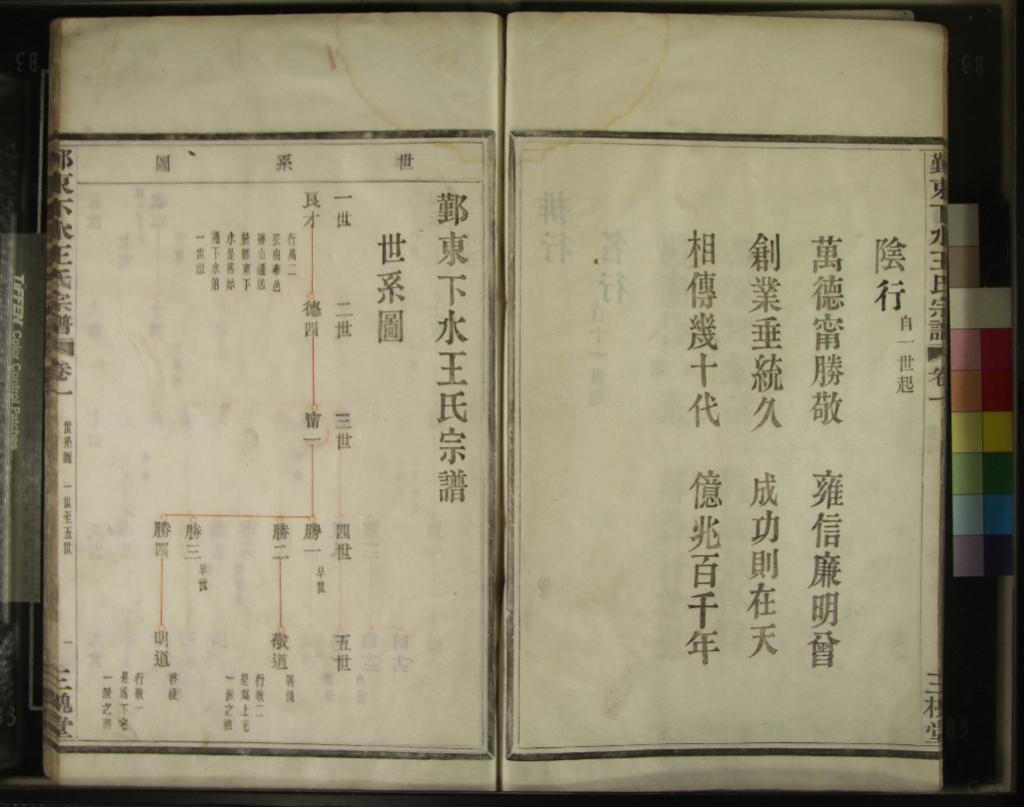 鄞東下水王氏宗譜
卷一
三槐堂
陰行
自一世起
萬德甯勝敬 雍信廉明曾
創業垂統久 成功則在天
相傳幾十代 億兆百千年
世系圖
鄞東下水王氏宗譜
世系圖
一世
二世
三世
四世
五世
良才
行萬二
於鄞東下
水是爲始
遷下水第
一世祖
德四
甯一
勝一
早世
勝二
勝三
早世
勝四
敬道
行敬二
是爲上宅
一派之祖
明道
行敬一
是爲下宅
一派之祖
鄞東下水王氏宗譜
卷一
世系圖 一世至五世
一
三槐堂
TIFFEN Color Control Patches
B3
B3
B3
B3